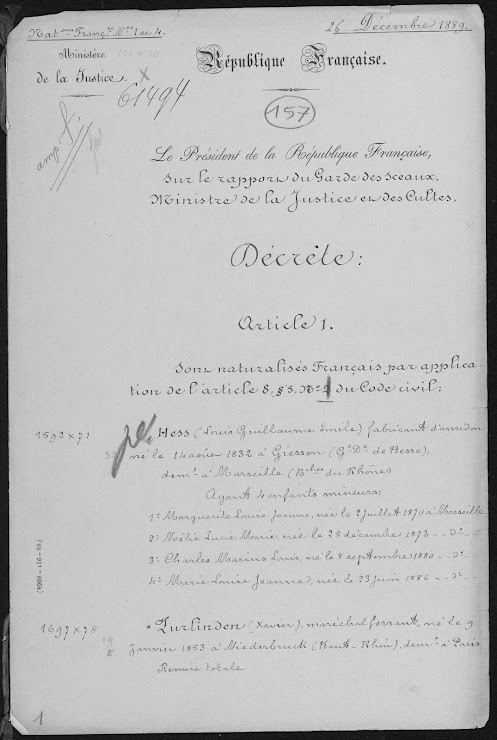 Nat.ons Franç.ses Nos 1 et 4.
26 Décembre 1889.
Ministère
de la Justice.
République Française.
X
61494
157
amp.
Le Président de la République Française,
Sur le rapport du Garde des Sceaux,
Ministre de la Justice et des Cultes.
Décrète:
Article 1.
Sont naturalisés Français par applica-
tion de l'article 8, §5, No 1 du Code civil:
1592 x 71
Hess (Louis Guillaume Emile) fabricant d'amidon
né le 14 août 1832 à Giessen (Gd Dé de Hesse),
demt à Marseille (Bches du Rhône)
Ayant 4 enfants mineurs:
1º Marguerite Lucie Jeanne, née le 2 juillet 1870 à Marseille
2º Mélie Lucie Marie, née le 25 décembre 1873 -- do --
3º Charles Marius Louis, né le 8 septembre 1880 -- do --
4º Marie Louise Jeanne, née le 23 juin 1886 -- do --
1697 x 78
19
E
Zurlinden (Xavier), maréchal ferrant, né le 9
janvier 1853 à Niederbruck (Haut-Rhin), demt à Paris
Remise totale
1